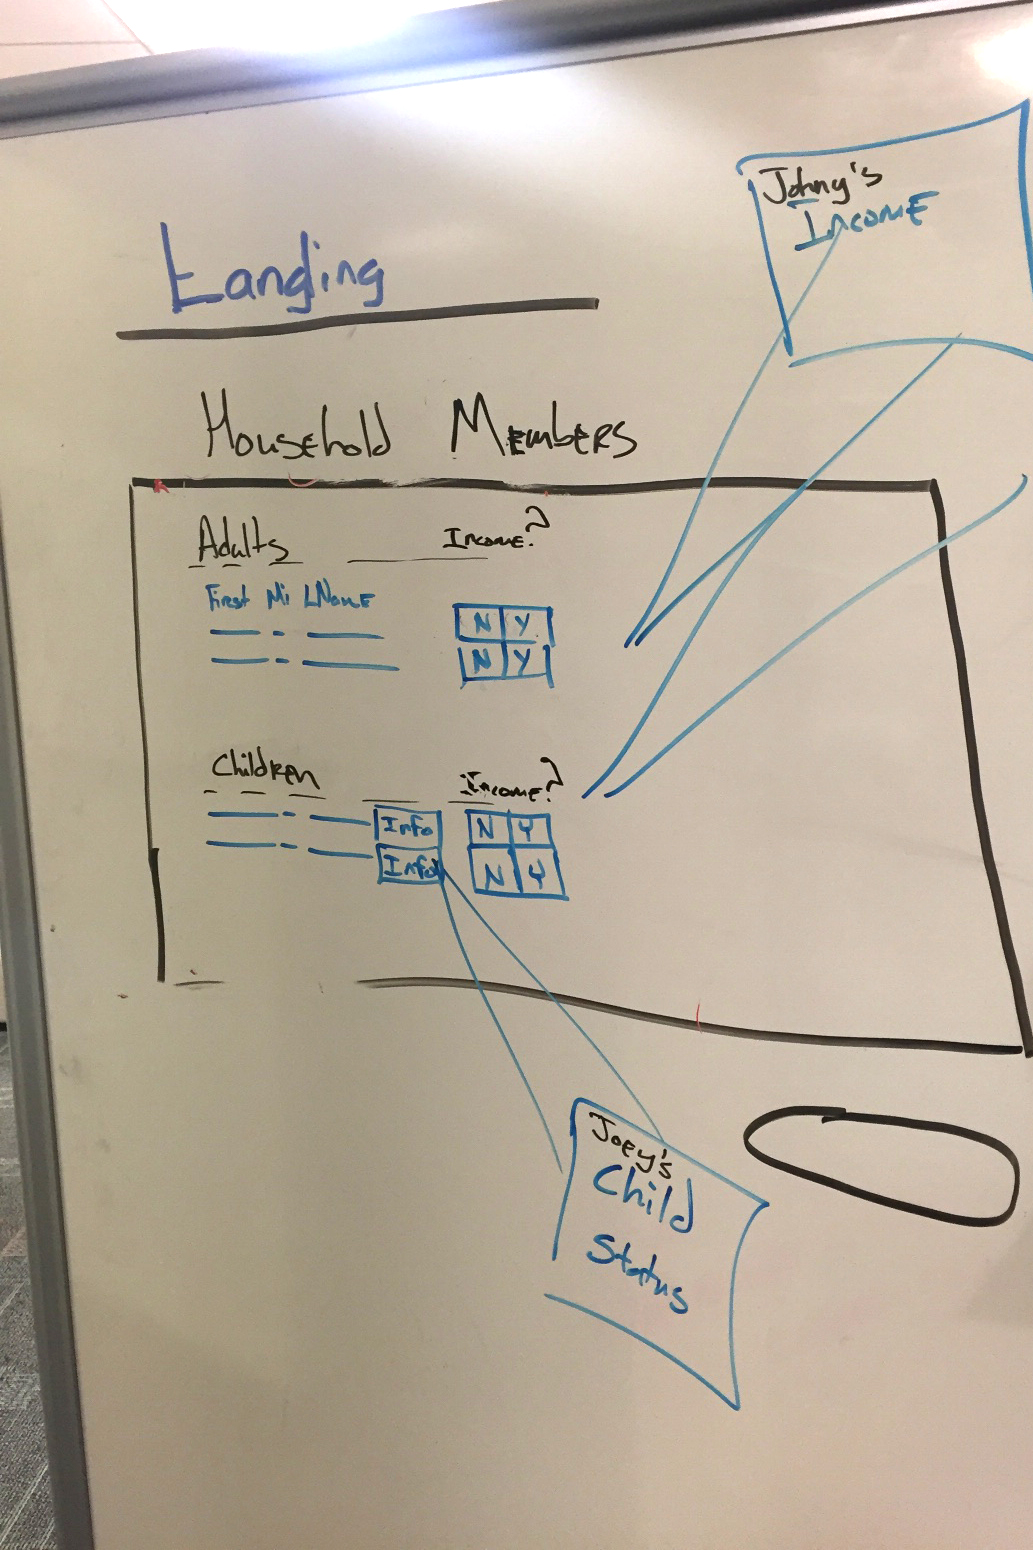 Landing
Johny's
Income
Household Members
Adults Income?
First Mi LName
N Y
N Y
Children Income?
Info N Y
Info N Y
Joey's
Child
Status